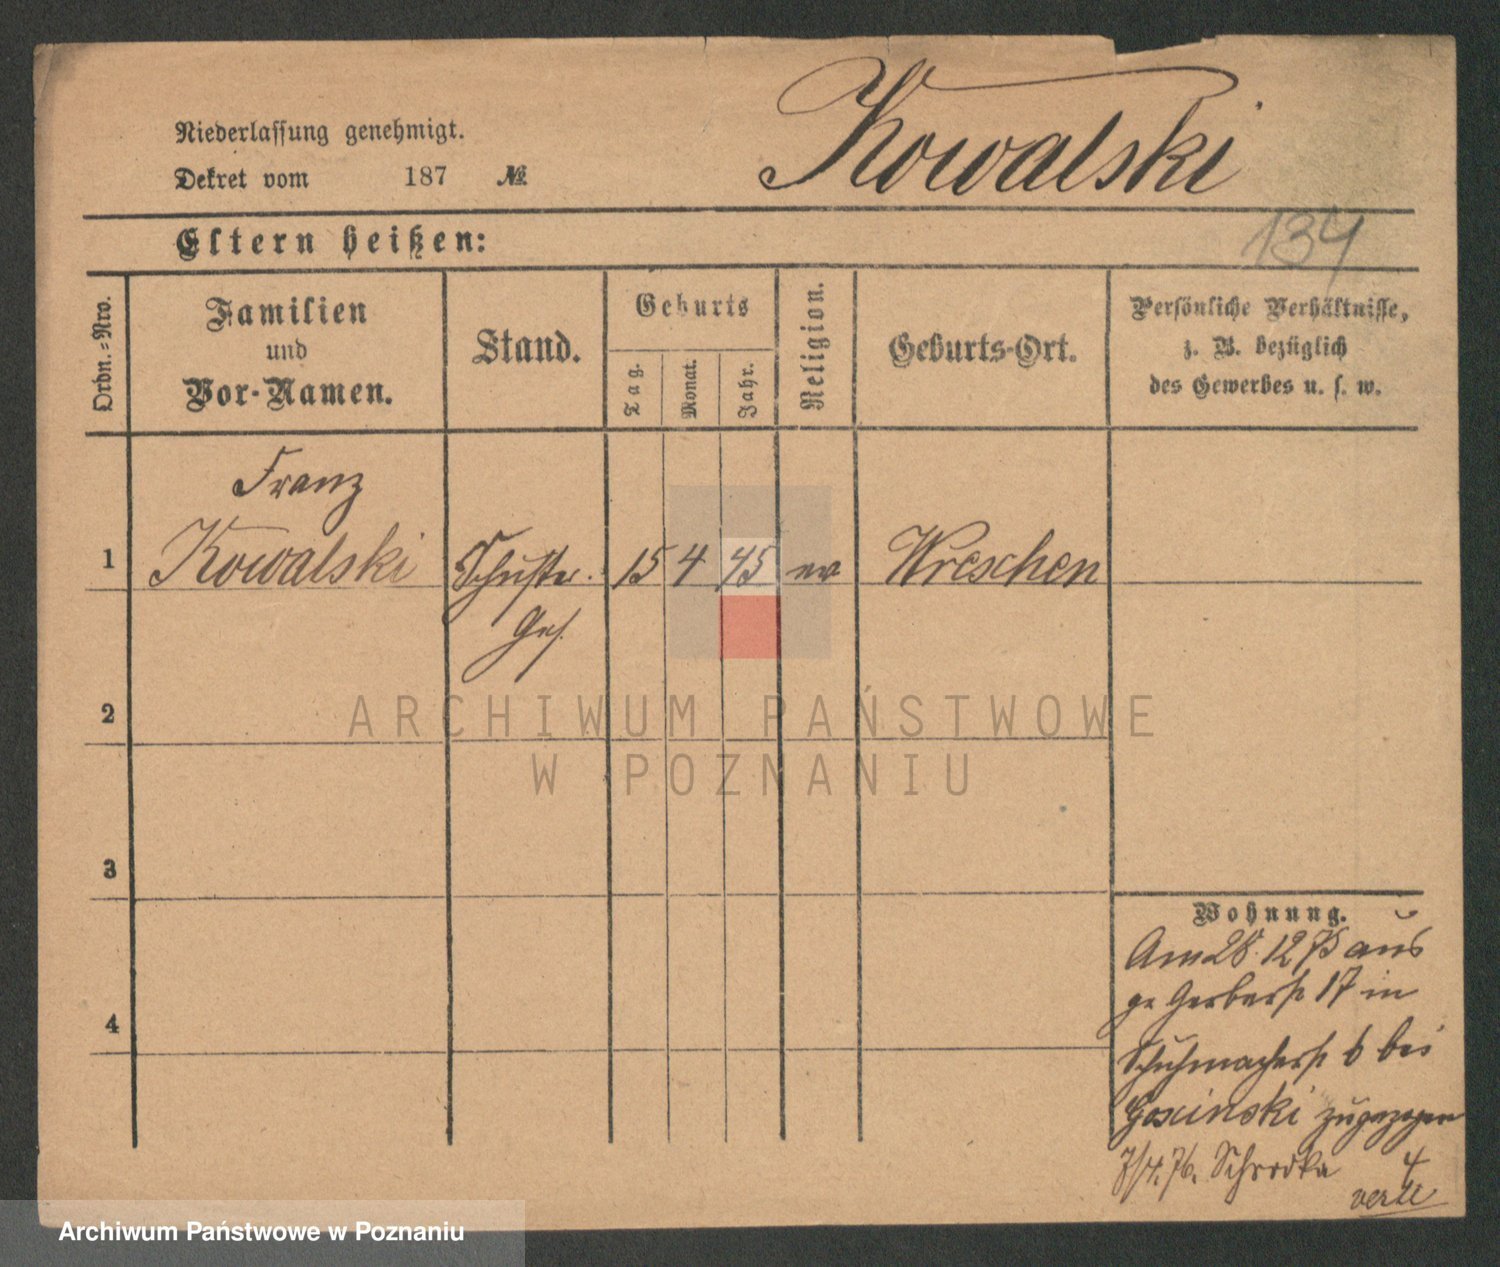 Kowalski
Niederlassung genehmigt.
Dekret vom 187 №
134
Eltern heißen:
Ordn.-Nro.
Familien
und
Vor-Namen.
Stand.
Geburts
Tag.
Monat.
Jahr.
Religion.
Geburts-Ort.
Persönliche Verhältnisse,
z. B. bezüglich
des Gewerbes u. s. w.
Franz
1 Kowalski Schuster. 15 4 45 Wreschen
Ges.
2
ARCHIWUM PAŃSTWOWE
W POZNANIU
3
Wohnung.
Am 28. 12 75 aus
gr Gerberst 17 in
4
Schuhmacherst 6 bei
zugezogen
7/4. 76. Schrodka 4
verte
Archiwum Państwowe w Poznaniu